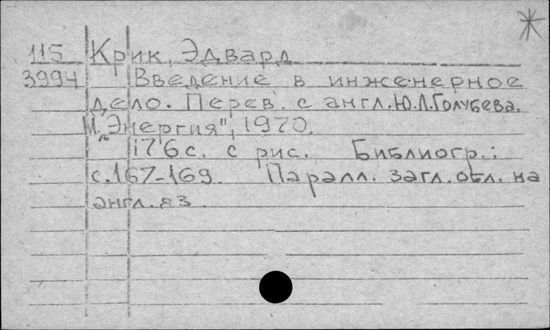 115 Крик, Эдвард
3994 Введение в инженерное
дело. Перев. с англ. Ю.Л.Голубева.
М. "Энергия", 1970.
176 с. с рис. Библиогр.:
с.167-169. Паралл. загл. обл. на
англ. яз